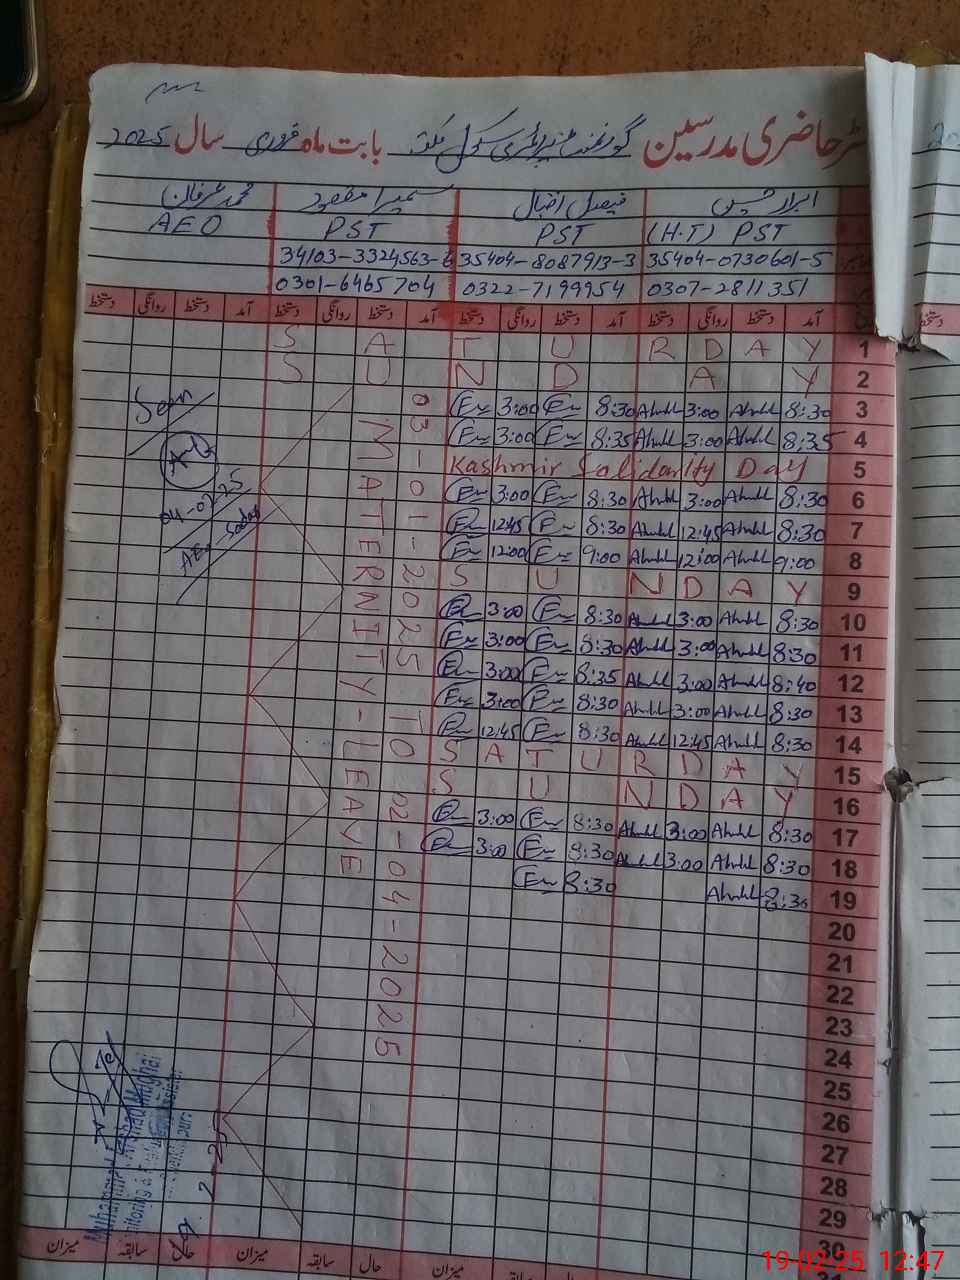 رجسٹر حاضری مدرسین گورنمنٹ پرائمری سکول بابت ماہ فروری سال 2025
ابرار حسین فیصل اقبال سمیرا مقصود محمد عرفان
(H.T) PST PST PST AEO
35404-0730601-5 35404-8087913-3 34103-3324563-6
0307-2811351 0322-7199954 0301-6465704
آمد دستخط روانگی دستخط آمد روانگی دستخط آمد دستخط روانگی دستخط آمد دستخط روانگی دستخط
1 S A T U R D A Y
2 S U N D A Y
3 8:30 3:00 8:30 3:00
4 8:35 3:00 8:35 3:00
5 Kashmir Solidarity Day
6 8:30 3:00 8:30 3:00
7 8:30 12:45 8:30 12:45
8 9:00 12:00 9:00 12:00
9 S U N D A Y
10 8:30 3:00 8:30 3:00
11 8:30 3:00 8:30 3:00
12 8:40 3:00 8:35 3:00
13 8:30 3:00 8:30 3:00
14 8:30 12:45 8:30 12:45
15 S A T U R D A Y
16 S U N D A Y
17 8:30 3:00 8:30 3:00
18 8:30 3:00 8:30 3:00
19 8:30 8:30
20
21
22
23
24
25
26
27
28
29
30
03-01-2025 TO 02-04-2025
MATERNITY-LEAVE
Seen
04-02-25
Muhammad Arshad Mughal
میزان سابقہ حال میزان سابقہ حال میزان سابقہ
19-02-25 12:47